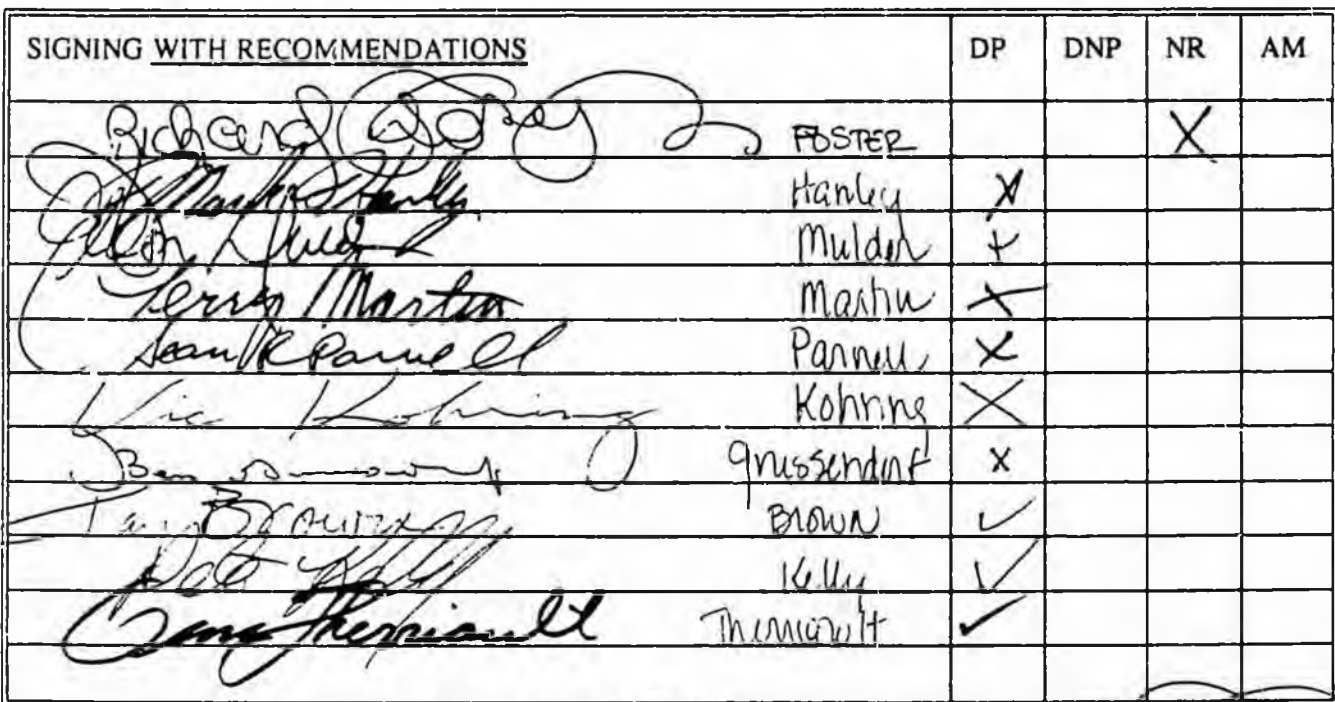 SIGNING WITH RECOMMENDATIONS DP DNP NR AM
Richard FOSTER X
Mark Hanley Hanley X
Mulder X
Terry Martin Martin X
Sean R Parnell Parnell X
Vic Kohring Kohring X
Ben Grussendorf X
Kay Brown Brown ✓
Pete Kelly Kelly ✓
Gene Therriault Therriault ✓